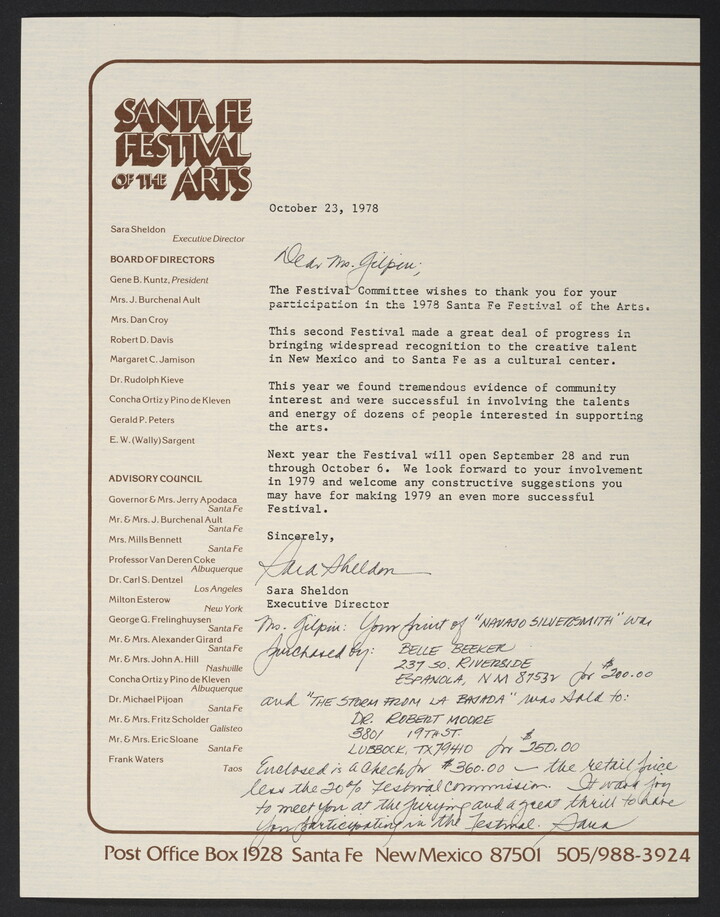 SANTA FE
FESTIVAL
OF THE ARTS
Sara Sheldon
Executive Director
BOARD OF DIRECTORS
Gene B. Kuntz, President
Mrs. J. Burchenal Ault
Mrs. Dan Croy
Robert D. Davis
Margaret C. Jamison
Dr. Rudolph Kieve
Concha Ortiz y Pino de Kleven
Gerald P. Peters
E. W. (Wally) Sargent
ADVISORY COUNCIL
Governor & Mrs. Jerry Apodaca
Santa Fe
Mr. & Mrs. J. Burchenal Ault
Santa Fe
Mrs. Mills Bennett
Santa Fe
Professor Van Deren Coke
Albuquerque
Dr. Carl S. Dentzel
Los Angeles
Milton Esterow
New York
George G. Frelinghuysen
Santa Fe
Mr. & Mrs. Alexander Girard
Santa Fe
Mr. & Mrs. John A. Hill
Nashville
Concha Ortiz y Pino de Kleven
Albuquerque
Dr. Michael Pijoan
Santa Fe
Mr. & Mrs. Fritz Scholder
Galisteo
Mr. & Mrs. Eric Sloane
Santa Fe
Frank Waters
Taos
October 23, 1978
Dear Ms. Gilpin;
The Festival Committee wishes to thank you for your
participation in the 1978 Santa Fe Festival of the Arts.
This second Festival made a great deal of progress in
bringing widespread recognition to the creative talent
in New Mexico and to Santa Fe as a cultural center.
This year we found tremendous evidence of community
interest and were successful in involving the talents
and energy of dozens of people interested in supporting
the arts.
Next year the Festival will open September 28 and run
through October 6. We look forward to your involvement
in 1979 and welcome any constructive suggestions you
may have for making 1979 an even more successful
Festival.
Sincerely,
Sara Sheldon
Sara Sheldon
Executive Director
Ms. Gilpin: Your print of "NAVAJO SILVERSMITH" was
purchased by: BELLE BEEKER
237 SO. RIVERSIDE
ESPANOLA, NM 87532 for $200.00
and "THE STORM FROM LA BAJADA" was sold to:
DR. ROBERT MOORE
3801 19TH ST.
LUBBOCK, TX 79410 for $250.00
Enclosed is a check for $360.00 — the retail price
less the 20% Festival commission. It was a joy
to meet you at the jurying and a great thrill to have
you participating in the Festival. Sara
Post Office Box 1928 Santa Fe New Mexico 87501 505/988-3924